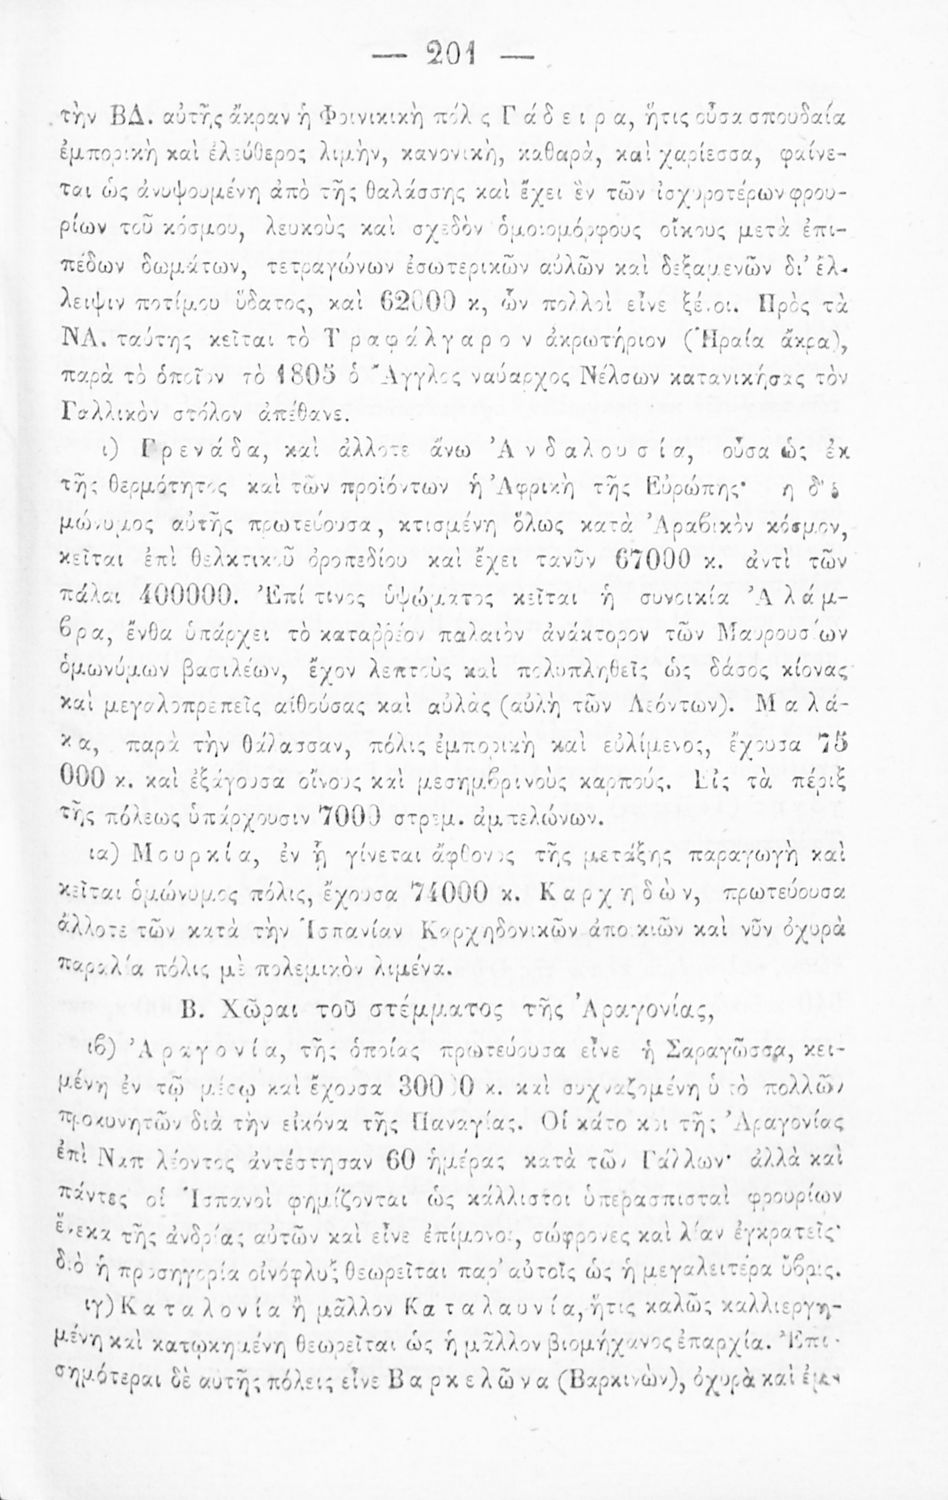 — 201 —
τὴν ΒΔ. αὐτῆς ἄκραν ἡ Φοινικικὴ πόλ ς Γ ά δ ε ι ρ α, ἥτις οὖσα σπουδαία
ἐμπορικὴ καὶ ἐλεύθερος λιμὴν, κανονικὴ, καθαρὰ, καὶ χαρίεσσα, φαίνε-
ται ὡς ἀνυψουμένη ἀπὸ τῆς θαλάσσης καὶ ἔχει ἓν τῶν ἰσχυροτέρων φρου-
ρίων τοῦ κόσμου, λευκοὺς καὶ σχεδὸν ὁμοιομόρφους οἴκους μετὰ ἐπι-
πέδων δωμάτων, τετραγώνων ἐσωτερικῶν αὐλῶν καὶ δεξαμενῶν δι’ ἔλ-
λειψιν ποτίμου ὕδατος, καὶ 62000 κ, ὧν πολλοὶ εἶνε ξένοι. Πρὸς τὰ
ΝΑ. ταύτης κεῖται τὸ Τ ρ α φ ά λ γ α ρ ο ν ἀκρωτήριον (Ἡραία ἄκρα),
παρὰ τὸ ὁποῖον τὸ 1805 ὁ Ἄγγλος ναύαρχος Νέλσων κατανικήσας τὸν
Γαλλικὸν στόλον ἀπέθανε.
ι) Γ ρ ε ν ά δ α, καὶ ἄλλοτε ἄνω Ἀ ν δ α λ ο υ σ ί α, οὖσα ὡς ἐκ
τῆς θερμότητος καὶ τῶν προϊόντων ἡ Ἀφρικὴ τῆς Εὐρώπης· η δ’ ὁ
μώνυμος αὐτῆς πρωτεύουσα, κτισμένη ὅλως κατὰ Ἀραβικὸν κόσμον,
κεῖται ἐπὶ θελκτικοῦ ὀροπεδίου καὶ ἔχει τανῦν 67000 κ. ἀντὶ τῶν
πάλαι 400000. Ἐπί τινος ὑψώματος κεῖται ἡ συνοικία Ἀ λ ά μ-
β ρ α, ἔνθα ὑπάρχει τὸ καταῤῥέον παλαιὸν ἀνάκτορον τῶν Μαυρουσίων
ὁμωνύμων βασιλέων, ἔχον λεπτοὺς καὶ πολυπληθεῖς ὡς δάσος κίονας
καὶ μεγαλοπρεπεῖς αἰθούσας καὶ αὐλὰς (αὐλὴ τῶν Λεόντων). Μ α λ ά-
κ α, παρὰ τὴν θάλασσαν, πόλις ἐμπορικὴ καὶ εὐλίμενος, ἔχουσα 75
000 κ. καὶ ἐξάγουσα οἴνους καὶ μεσημβρινοὺς καρπούς. Εἰς τὰ πέριξ
τῆς πόλεως ὑπάρχουσιν 7000 στρεμ. ἀμπελώνων.
ια) Μ ο υ ρ κ ί α, ἐν ᾗ γίνεται ἄφθονος τῆς μετάξης παραγωγὴ καὶ
κεῖται ὁμώνυμος πόλις, ἔχουσα 74000 κ. Κ α ρ χ η δ ὼ ν, πρωτεύουσα
ἄλλοτε τῶν κατὰ τὴν Ἱσπανίαν Καρχηδονικῶν ἀποικιῶν καὶ νῦν ὀχυρὰ
παραλία πόλις μὲ πολεμικὸν λιμένα.
Β. Χῶραι τοῦ στέμματος τῆς Ἀραγονίας,
ιβ) Ἀ ρ α γ ο ν ί α, τῆς ὁποίας πρωτεύουσα εἶνε ἡ Σαραγῶσσα, κει-
μένη ἐν τῷ μέσῳ καὶ ἔχουσα 30000 κ. καὶ συχναζομένη ὑπὸ πολλῶν
προκυνητῶν διὰ τὴν εἰκόνα τῆς Παναγίας. Οἱ κάτοικοι τῆς Ἀραγονίας
ἐπὶ Ναπολέοντος ἀντέστησαν 60 ἡμέρας κατὰ τῶν Γάλλων· ἀλλὰ καὶ
πάντες οἱ Ἱσπανοὶ φημίζονται ὡς κάλλιστοι ὑπερασπισταὶ φρουρίων
ἕνεκα τῆς ἀνδρίας αὐτῶν καὶ εἶνε ἐπίμονοι, σώφρονες καὶ λίαν ἐγκρατεῖς·
διὸ ἡ προσηγορία οἰνόφλυξ θεωρεῖται παρ’ αὐτοῖς ὡς ἡ μεγαλειτέρα ὕβρις.
ιγ) Κ α τ α λ ο ν ί α ἢ μᾶλλον Κ α τ α λ α υ ν ί α, ἥτις καλῶς καλλιεργη-
μένη καὶ κατῳκημένη θεωρεῖται ὡς ἡ μᾶλλον βιομήχανος ἐπαρχία. Ἐπι-
σημότεραι δὲ αὐτῆς πόλεις εἶνε Β α ρ κ ε λ ῶ ν α (Βαρκινὼν), ὀχυρὰ καὶ ἐμ-